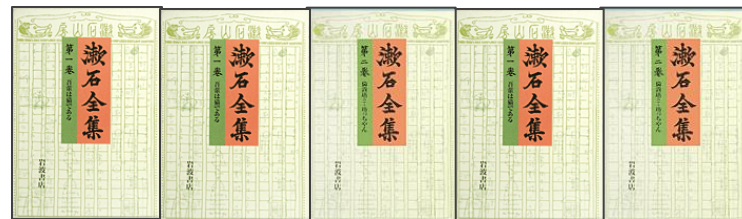 漱石全集
第一巻 吾輩は猫である
岩波書店
漱石全集
第一巻 吾輩は猫である
岩波書店
漱石全集
第二巻 倫敦塔ほか・坊っちゃん
岩波書店
漱石全集
第一巻 吾輩は猫である
岩波書店
漱石全集
第二巻 倫敦塔ほか・坊っちゃん
岩波書店